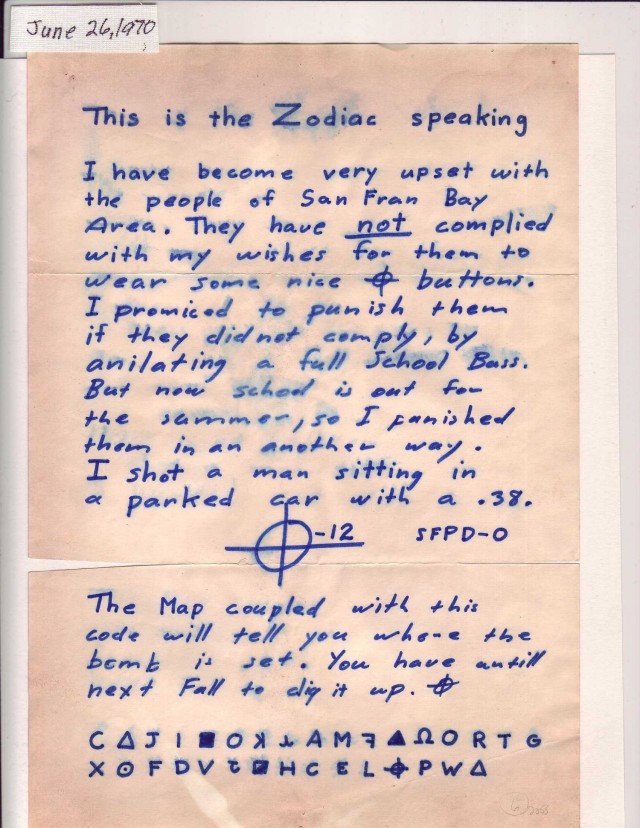 June 26, 1970
This is the Zodiac speaking
I have become very upset with
the people of San Fran Bay
Area. They have not complied
with my wishes for them to
wear some nice ⌖ buttons.
I promiced to punish them
if they did not comply, by
anilating a full School Buss.
But now school is out for
the summer, so I punished
them in an another way.
I shot a man sitting in
a parked car with a .38.
⌖-12 SFPD-0
The Map coupled with this
code will tell you where the
bomb is set. You have untill
next Fall to dig it up. ⌖
C Δ J I ■ O ꓘ ⅄ A M ꟻ ▲ Ω O R T G
X ⊙ F D V Ƨ ■ H C E L ⌖ P W Δ